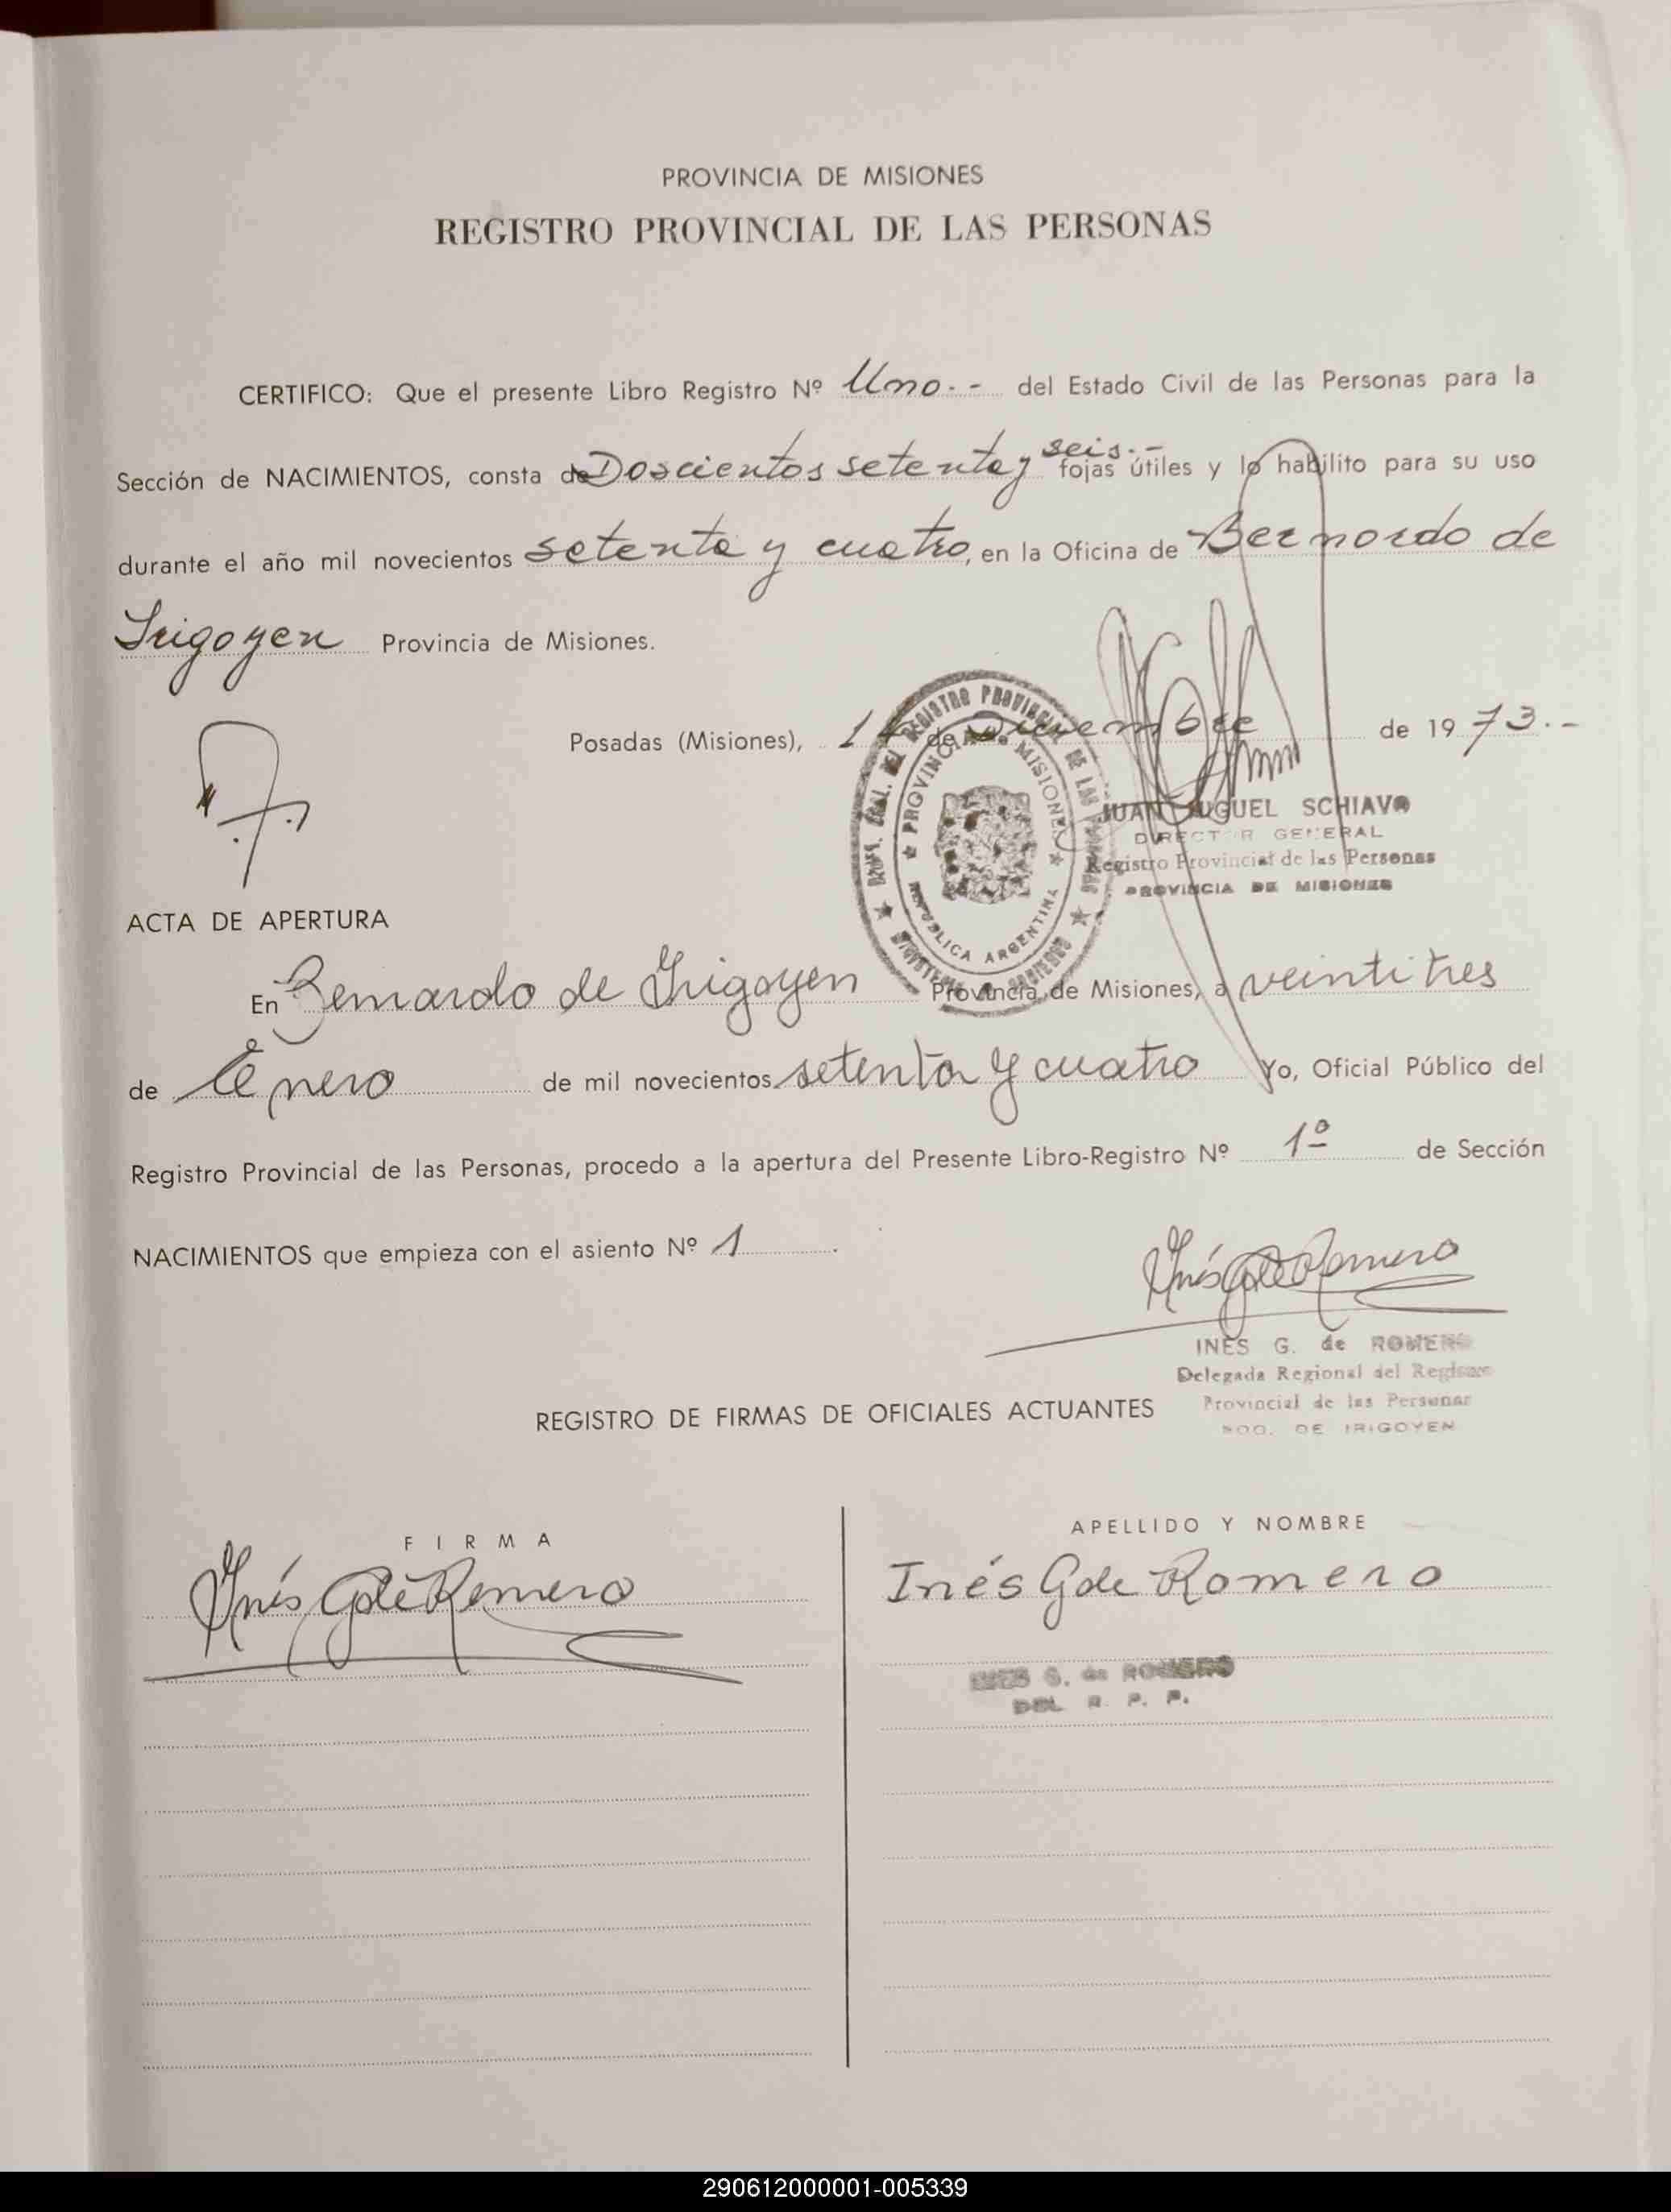 PROVINCIA DE MISIONES
REGISTRO PROVINCIAL DE LAS PERSONAS
CERTIFICO: Que el presente Libro Registro Nº Uno.- del Estado Civil de las Personas para la
Sección de NACIMIENTOS, consta de Doscientos setenta y seis.- fojas útiles y lo habilito para su uso
durante el año mil novecientos setenta y cuatro, en la Oficina de Bernardo de
Irigoyen Provincia de Misiones.
Posadas (Misiones), de Diciembre de 1973.-
JUAN MIGUEL SCHIAVO
DIRECTOR GENERAL
Registro Provincial de las Personas
PROVINCIA DE MISIONES
REGISTRO PROVINCIAL DE LAS PERSONAS
PROVINCIA DE MISIONES
REPUBLICA ARGENTINA
ACTA DE APERTURA
En Bernardo de Irigoyen Provincia de Misiones, a veintitres
de Enero de mil novecientos setenta y cuatro Yo, Oficial Público del
Registro Provincial de las Personas, procedo a la apertura del Presente Libro-Registro Nº 1º de Sección
NACIMIENTOS que empieza con el asiento Nº 1.
Inés G de Romero
INÉS G. de ROMERO
Delegada Regional del Registro
Provincial de las Personas
BDO. DE IRIGOYEN
REGISTRO DE FIRMAS DE OFICIALES ACTUANTES
FIRMA
APELLIDO Y NOMBRE
Inés G de Romero
Inés G de Romero
INES G. de ROMERO
DEL R. P. P.
290612000001-005339